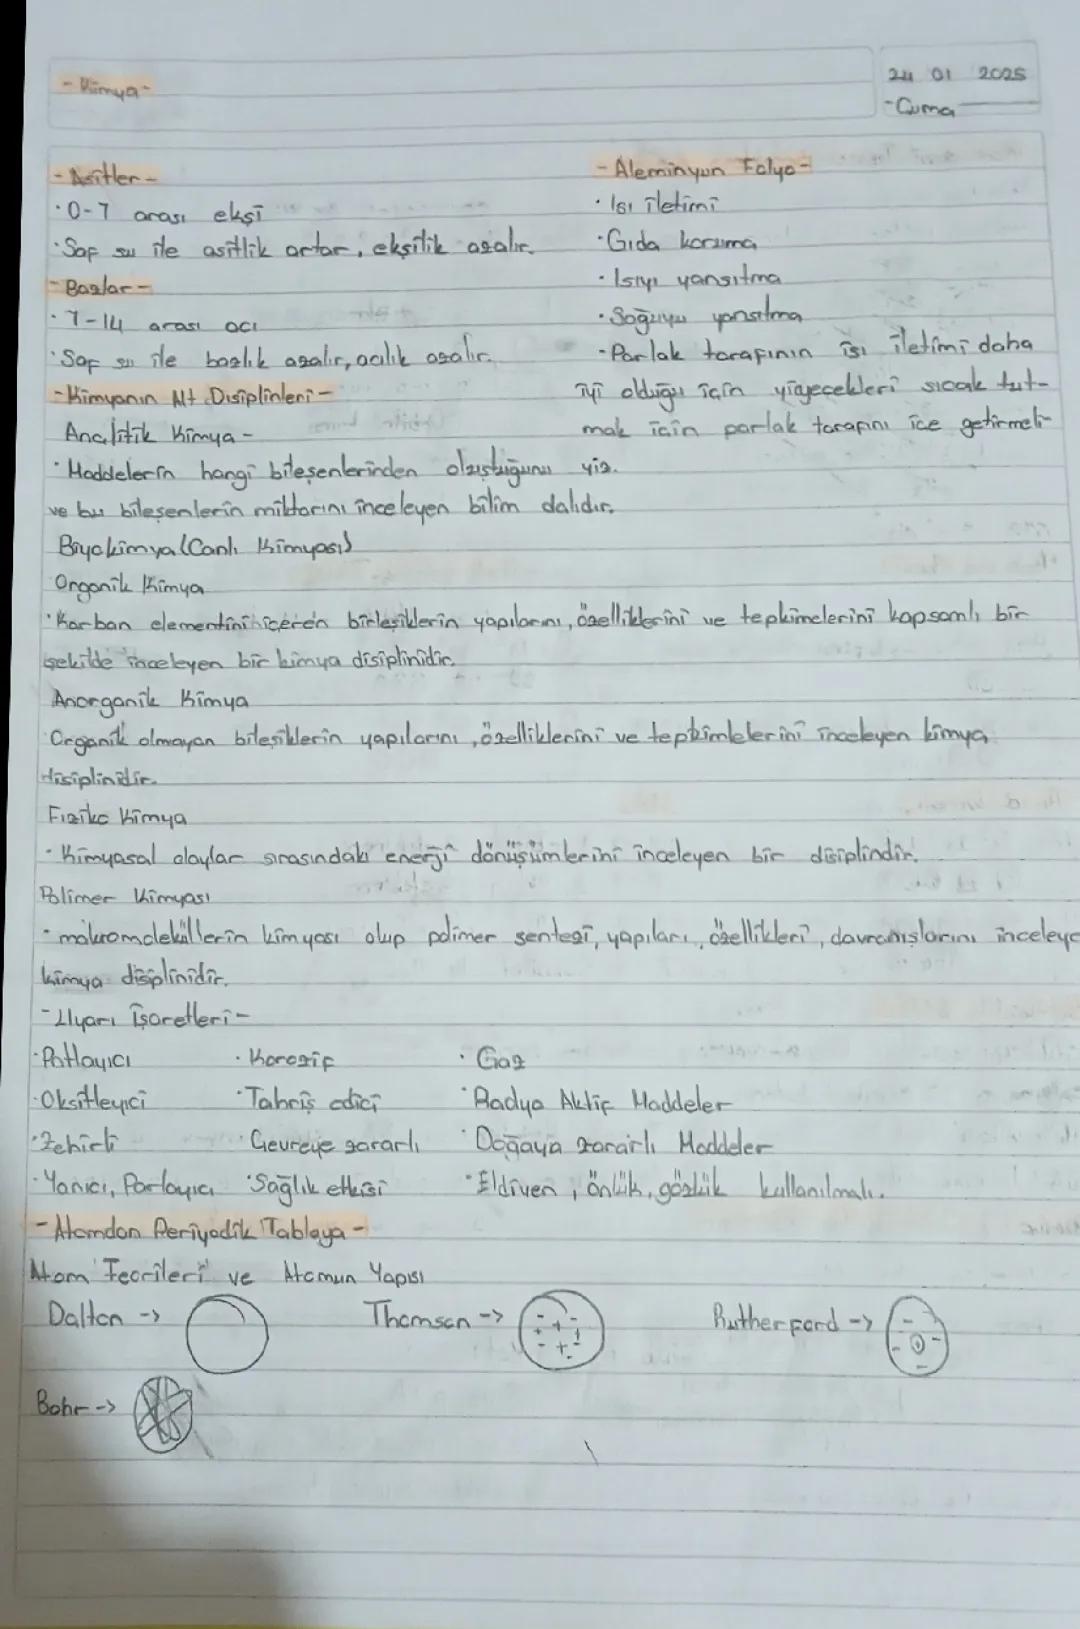 - Kimya -
24 01 2025
- Cuma
- Asitler -
· 0-7 arası ekşi
· Saf su ile asitlik artar, ekşilik azalır.
- Bazlar -
· 7-14 arası acı
· Saf su ile bazlık azalır, acılık azalır.
- Kimyanın Alt Disiplinleri -
Analitik Kimya -
· Maddelerin hangi bileşenlerinden oluştuğunu
ve bu bileşenlerin miktarını inceleyen bilim dalıdır.
- Aleminyun Folyo -
· Isı iletimi
· Gıda koruma
· Isıyı yansıtma
· Soğuyu yansıtma
· Parlak tarafının ısı iletimi daha
iyi olduğu için yiyecekleri sıcak tut-
mak için parlak tarafını içe getirmeli-
yiz.
Biyokimya (Canlı Kimyası)
Organik Kimya
· Karbon elementini içeren birleşiklerin yapılarını, özelliklerini ve tepkimelerini kapsamlı bir
şekilde inceleyen bir kimya disiplinidir.
Anorganik Kimya
Organik olmayan bileşiklerin yapılarını, özelliklerini ve tepkimlelerini inceleyen kimya
disiplinidir.
Fiziko Kimya
· Kimyasal olaylar sırasındaki enerji dönüşümlerini inceleyen bir disiplindir.
Polimer Kimyası
· makromoleküllerin kimyası olup polimer sentezi, yapıları, özellikleri, davranışlarını inceleye
kimya disiplinidir.
- Uyarı İşaretleri -
· Patlayıcı · Korozif · Gaz
· Oksitleyici · Tahriş edici · Radyo Aktif Maddeler
· Zehirli · Çevreye zararlı · Doğaya zararlı Maddeler
· Yanıcı, Parlayıcı · Sağlık etkisi · Eldiven, önlük, gözlük kullanılmalı.
- Atomdan Periyodik Tabloya -
Atom Teorileri ve Atomun Yapısı
Dalton -> Thomson -> Rutherford ->
Bohr ->